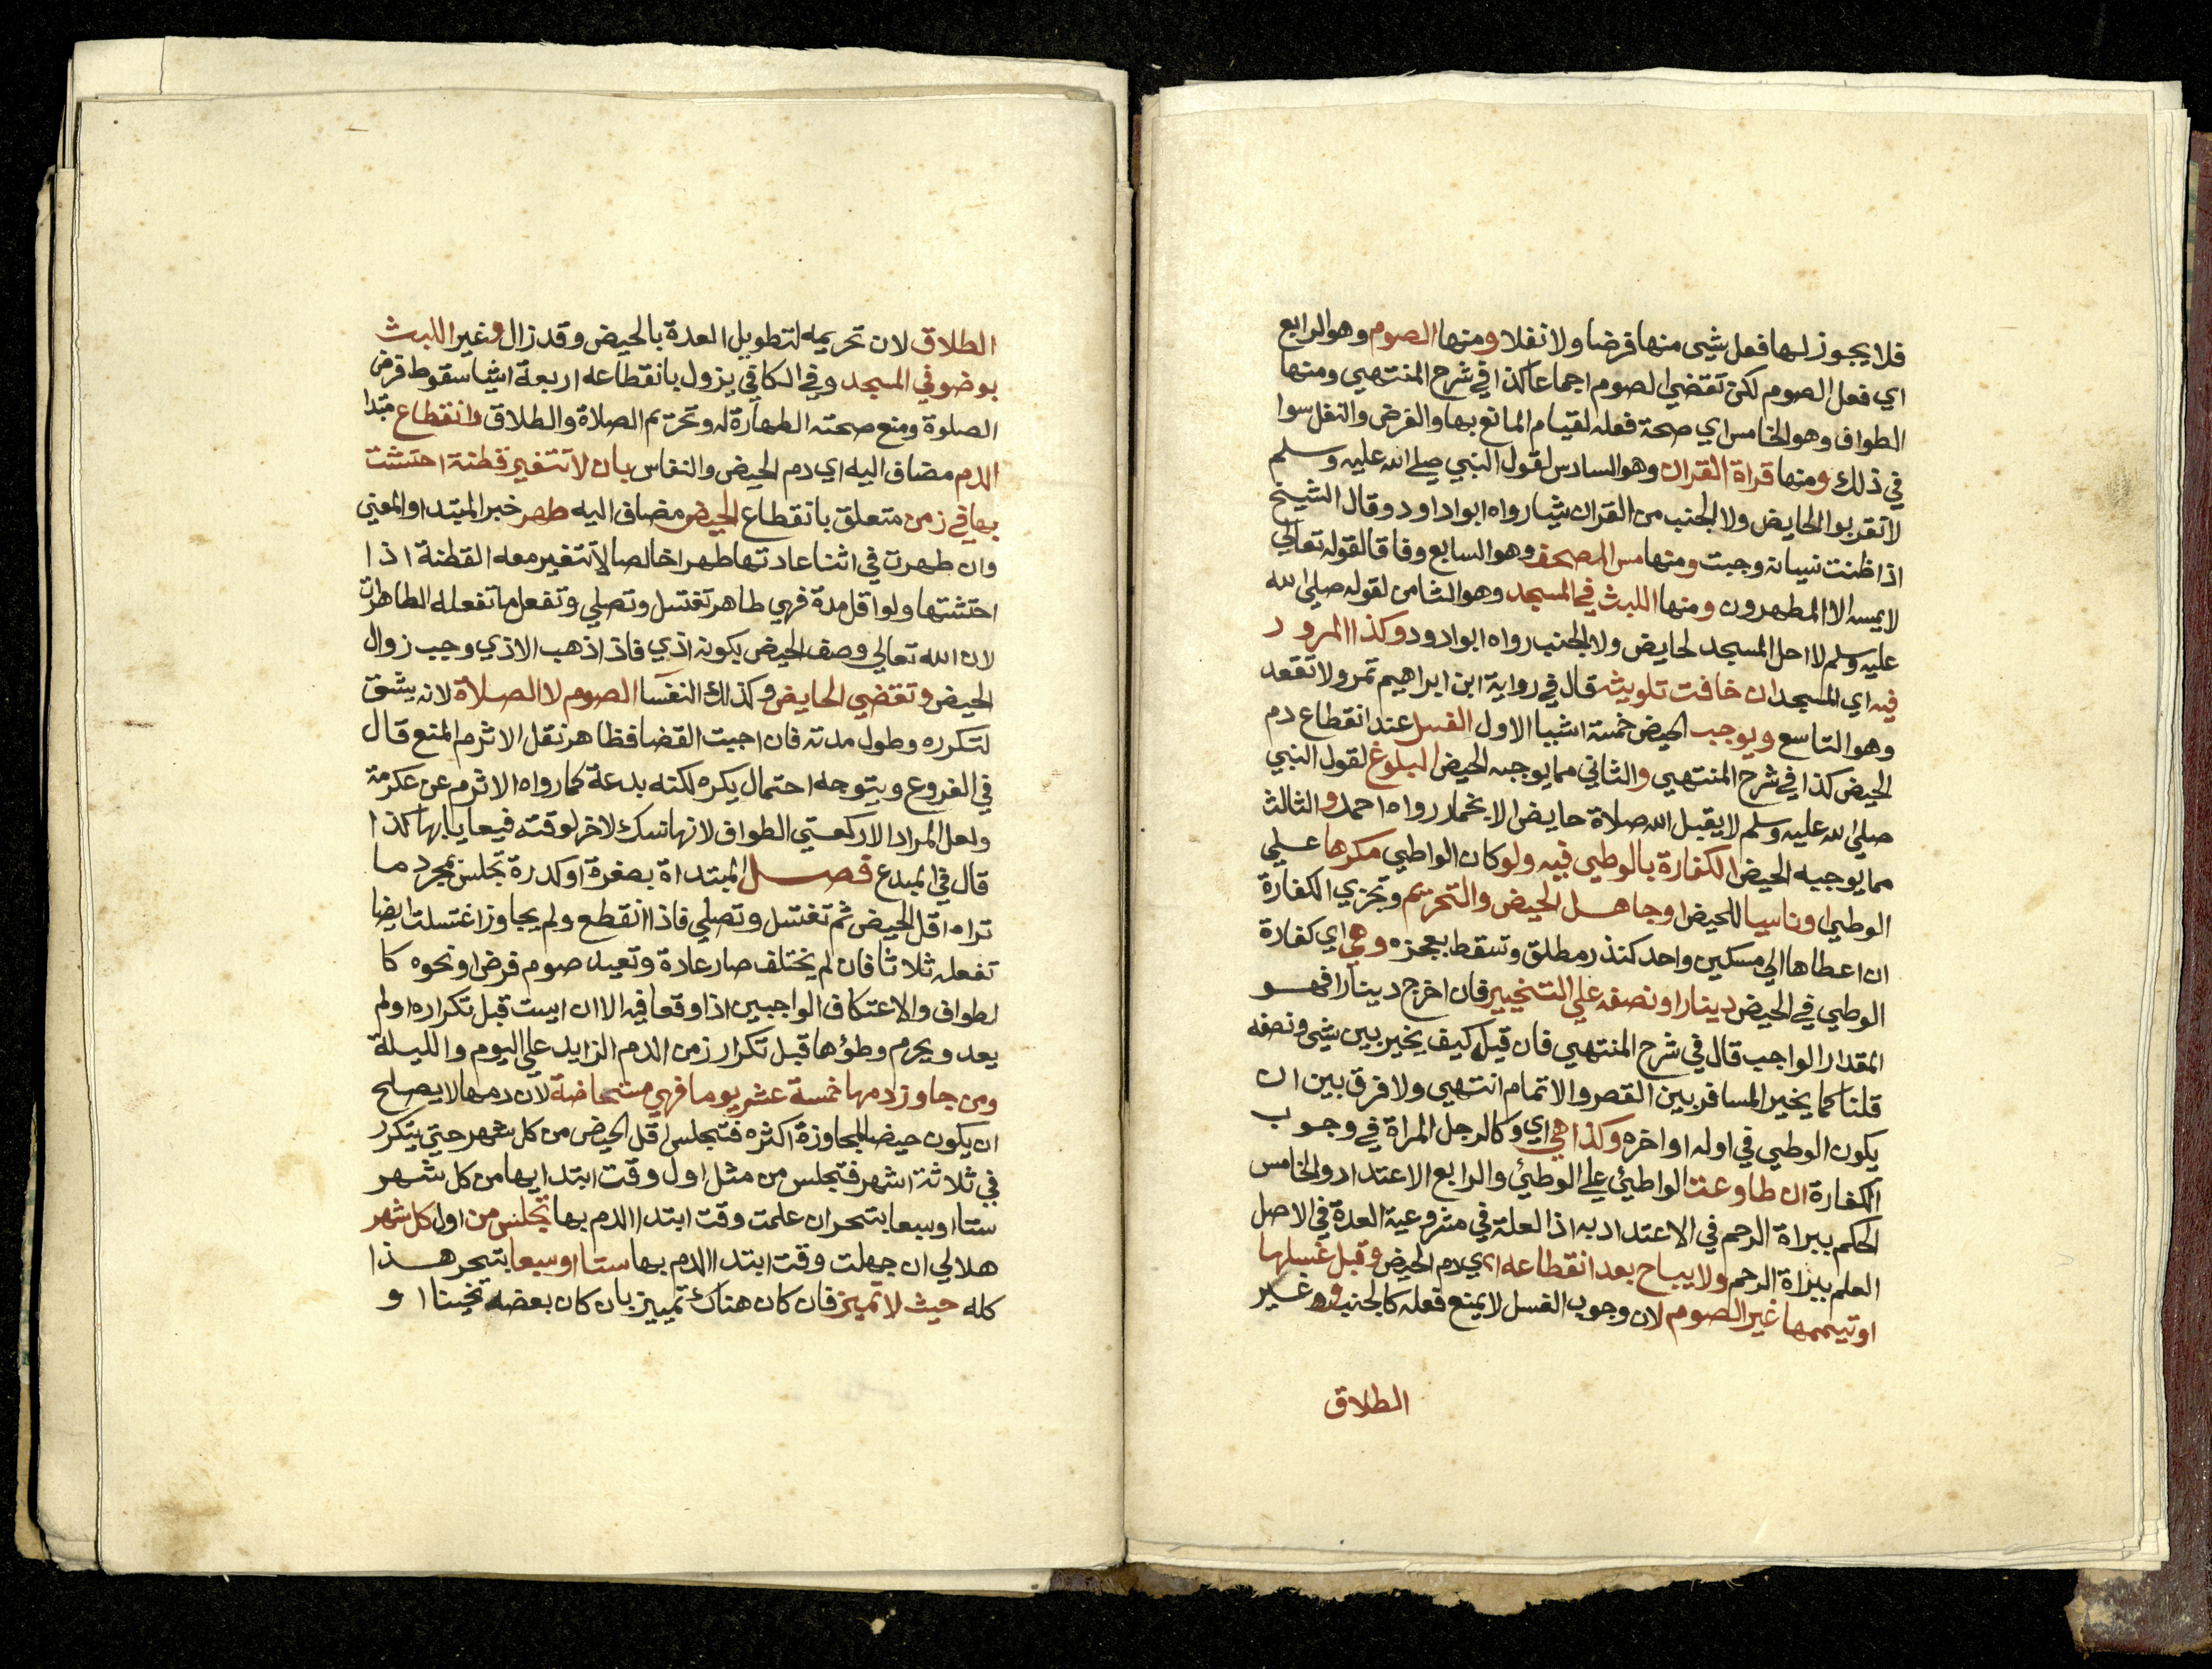 فلا يجوز لها فعل شيى منها فرضا ولا نفلا ومنها الصوم وهو الرابع
اي فعل الصوم لكن تقضي الصوم اجماعا كذا في شرح المنتهي ومنها
الطواف وهو الخامس اي صحة فعله لقيام المانع بها والفرض والنفل سوا
في ذلك ومنها قراة القران وهو السادس لقول النبي صلي الله عليه وسلم
لا تقربوا الحايض ولا الجنب من القران شيا رواه ابو اداود وقال الشيخ
اذا ظنت نسيانه وجبت ومنها مس المصحف وهو السابع وفاقا لقوله تعالي
لا يمسه الا المطهرون ومنها اللبث في المسجد وهو الثامن لقوله صلي الله
عليه وسلم لا احل المسجد لحايض ولا لجنب رواه ابوا دود وكذا المرور
فيه اي المسجد ان خافت تلويثه قال في رواية ابن ابراهيم تمر ولا تقعد
وهو التاسع ويوجب الحيض خمسة اشيا الاول الغسل عند انقطاع دم
الحيض كذا في شرح المنتهي والثاني مما يوجبه الحيض البلوغ لقول النبي
صلي الله عليه وسلم لا يقبل الله صلاة حايض الا بخمار رواه احمد والثالث
مما يوجبه الحيض الكفارة بالوطي فيه ولو كان الواطي مكرها علي
الوطي او ناسيا للحيض او جاهل الحيض والتحريم وتجزي الكفارة
ان اعطاها الي مسكين واحد كنذر مطلق وتسقط بعجزه وهي اي كفارة
الوطي في الحيض دينارا ونصفه علي التخيير فان اخرج دينارا فهو
المقدار الواجب قال في شرح المنتهي فان قيل كيف يخير بين شي ونصفه
قلنا كما يخير المسافر بين القصر والاتمام انتهي ولا فرق بين ان
يكون الوطي في اوله او اخره وكذا هي اي وكالرجل المراة في وجوب
الكفارة ان طاوعت الواطئ علي الوطئ والرابع الاعتداد والخامس
الحكم ببراة الرحم في الاعتداد به اذا لعلة في مشروعية العدة في الاصل
العلم ببراة الرحم ولا يباح بعد انقطاعه اي دم الحيض وقبل غسلها
او تيممها غير الصوم لان وجوب الغسل لا يمنع فعله كالجنب وغير
الطلاق
الطلاق لان تحريمه لتطويل العدة بالحيض وقد زال وغير اللبث
بوضو في المسجد وفي الكافي يزول بانقطاعه اربعة اشيا سقوط فرض
الصلوة ومنع صحته الطهارة له وتحريم الصلاة والطلاق وانقطاع مبتدا
الدم مضاف اليه اي دم الحيض والنفاس بان لا تتغير قطنة احتشت
بها في زمن متعلق بانقطاع الحيض مضاف اليه طهر خبر المبتدا والمعني
وان طهرت في اثنا عادتها طهرا خالصا لا تتغير معه القطنة اذا
احتشتها ولو اقل مدة فهي طاهر تغتسل وتصلي وتفعل ما تفعله الطاهرات
لان الله تعالي وصف الحيض بكونه اذي فاذا ذهب الاذي وجب زوال
الحيض وتقضي الحايض وكذلك النفسا الصوم لا الصلاة لانه يشق
لتكرره وطول مدته فان احبت القضا فظاهر نقل الاثرم المنع قال
في الفروع ويتوجه احتمال يكره لكنه بدعة كما رواه الاثرم عن عكرمة
ولعل المراد الا ركعتي الطواف لانها نسك لا اخر لوقته فيعايا بها كذا
قال في المبدع فصل المبتداة بصفرة او كدرة تجلس بمجرد ما
تراه اقل الحيض ثم تغتسل وتصلي فاذا انقطع ولم يجاوز اغتسلت ايضا
تفعله ثلاثا فان لم يختلف صار عادة وتعيد صوم فرض او نحوه كا
لطواف والاعتكاف الواجبين اذا وقعا فيه الا ان ايست قبل تكراره او لم
يعد ويحرم وطؤها قبل تكرار زمن الدم الزايد علي اليوم والليلة
ومن جاوز دمها خمسة عشر يوما فهي مستحاضة لان دمها لا يصلح
ان يكون حيضا لمجاوزة اكثره فتجلس اقل الحيض من كل شهر حتي يتكرر
في ثلاثة اشهر فتجلس من مثل اول وقت ابتدايها من كل شهر
ستا او سبعا بتحر ان علمت وقت ابتدا الدم بها تجلس من اول كل شهر
هلالي ان جهلت وقت ابتدا الدم بها ستا او سبعا بتحر هذا
كله حيث لا تميز فان كان هناك تمييز بان كان بعضه تخينا ا و